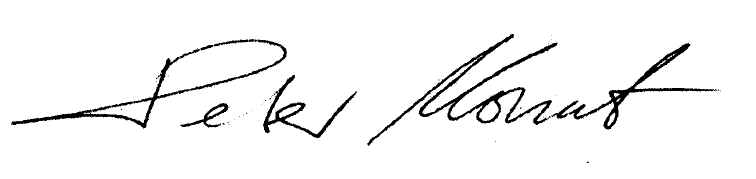 Peter Monat